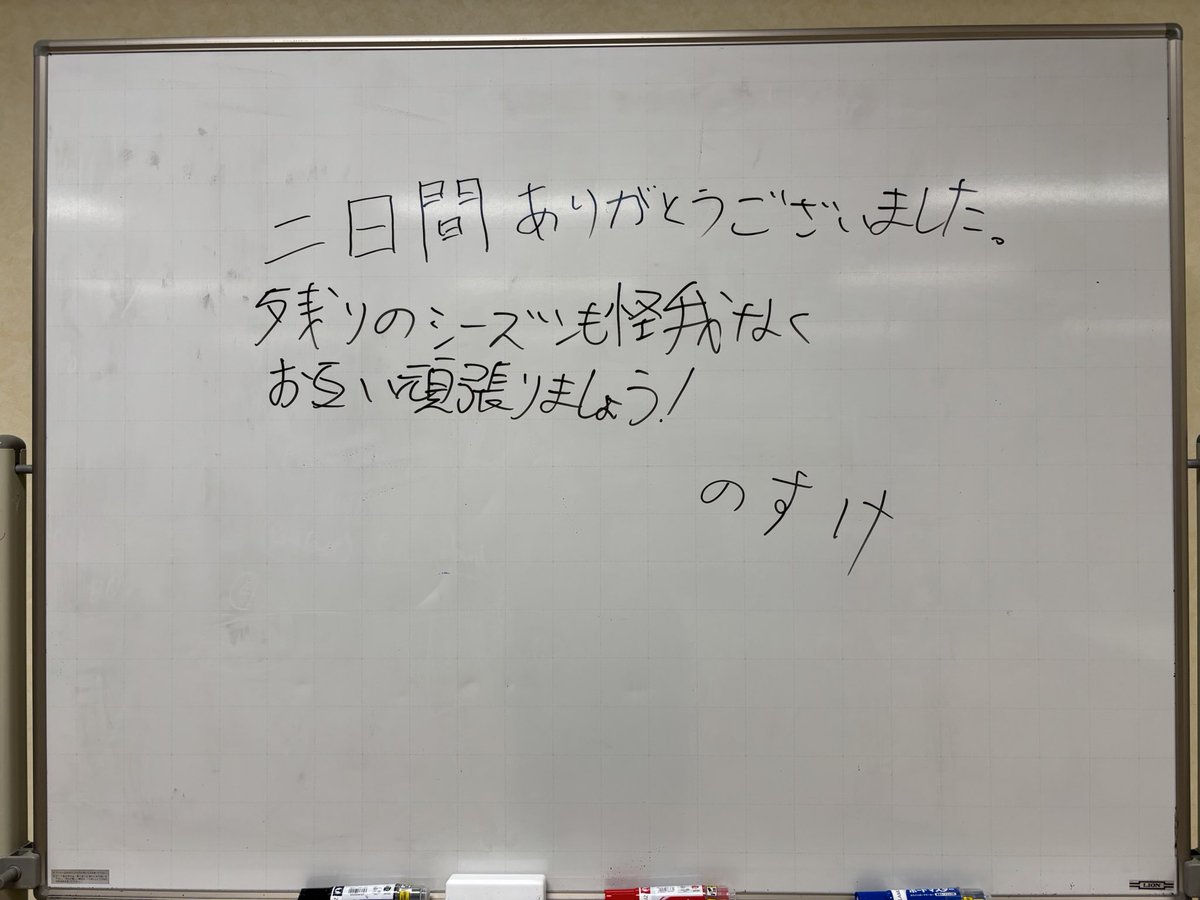 二日間ありがとうございました。
残りのシーズンも怪我なく
お互い頑張りましょう!
のすけ
LION